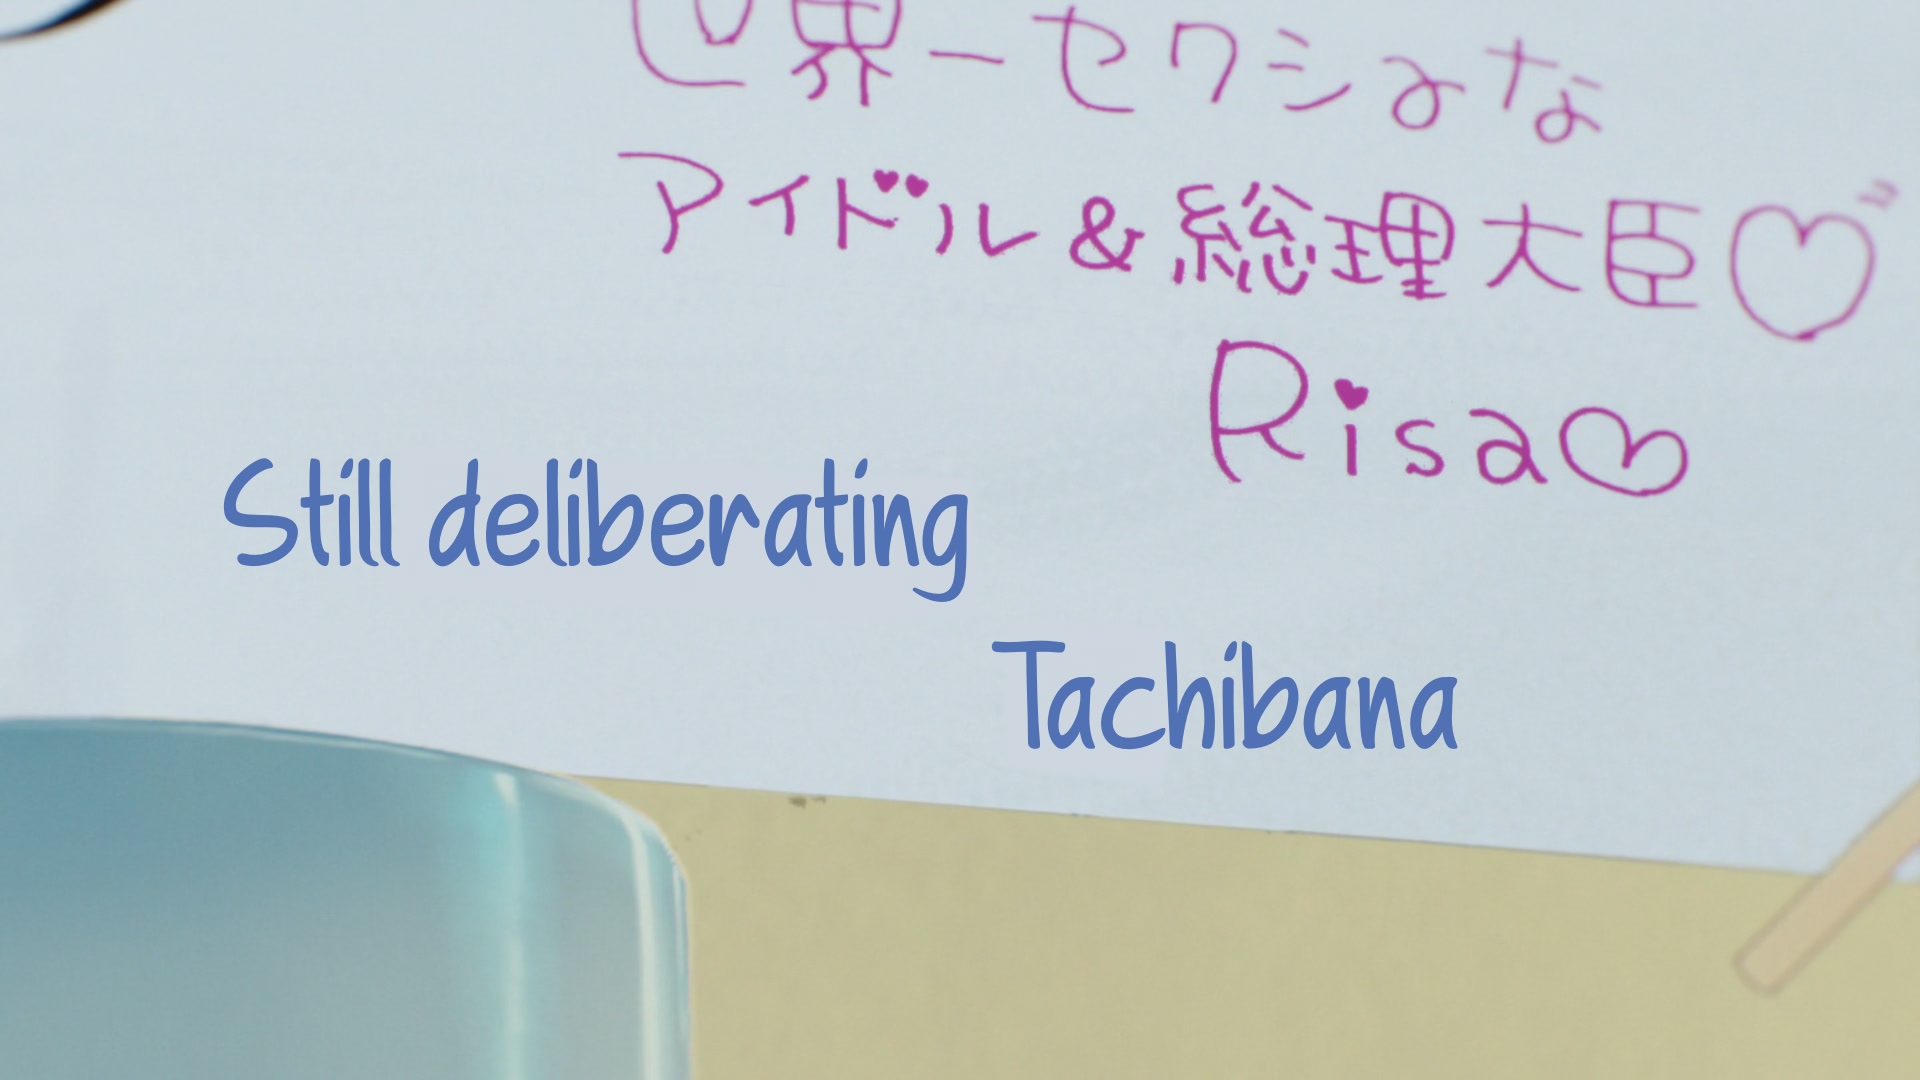 世界一セクシーな
アイドル&総理大臣♡
Risa♡
Still deliberating
Tachibana